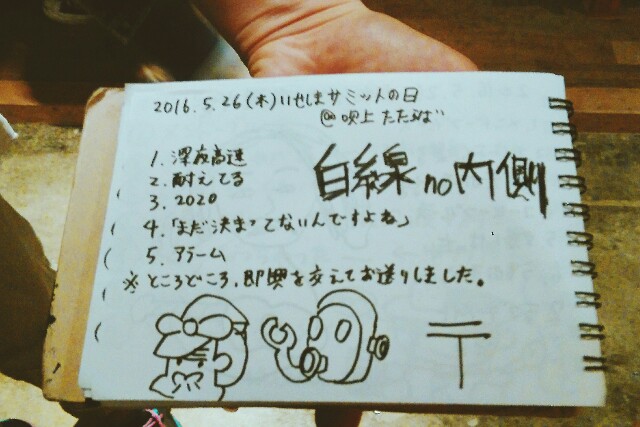 2016.5.26(木)いせしまサミットの日
@吹上 たたらば
白線 no 内側
1. 深夜高速
2. 耐えてる
3. 2020
4.「まだ決まってないんですよね」
5. アラーム
※ところどころ、即興を交えてお送りしました。
〒